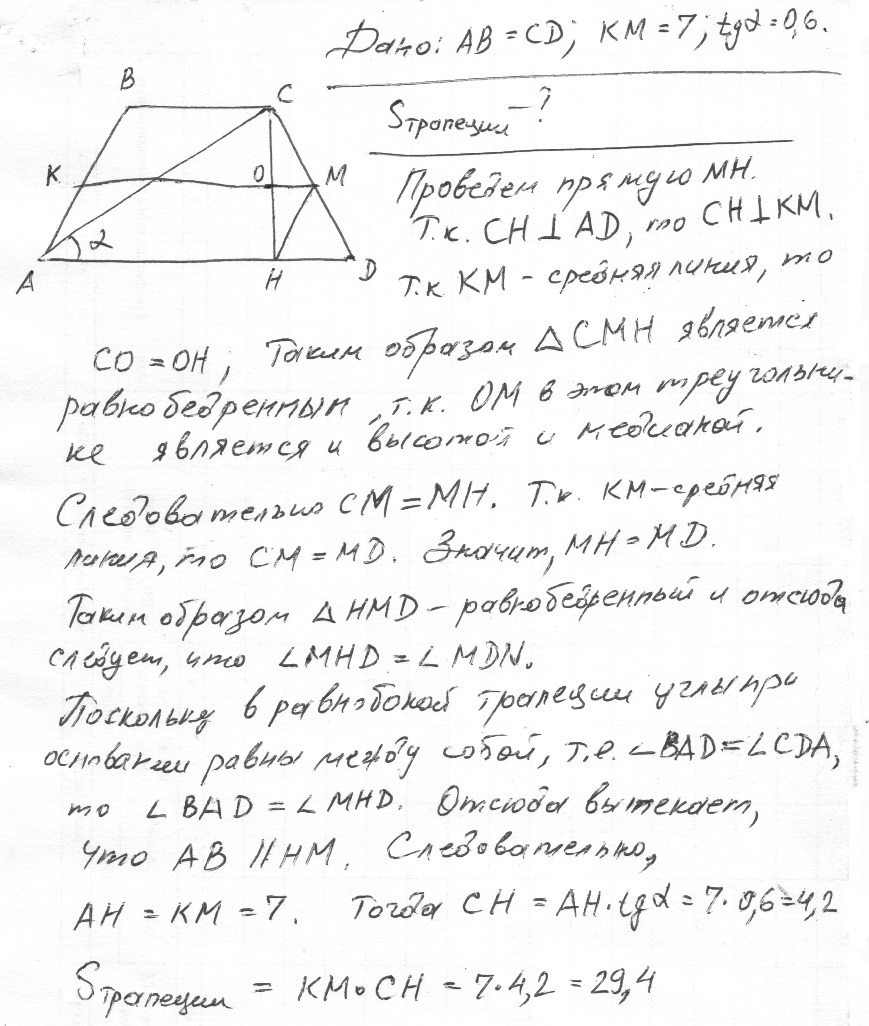 Дано: AB = CD; KM = 7; tgα = 0,6.
Sтрапеции - ?
B
C
K
O
M
α
A
H
D
Проведем прямую MH.
Т.к. CH ⊥ AD, то CH ⊥ KM.
Т.к KM - средняя линия, то
CO = OH; Таким образом △CMH является
равнобедренным, т.к. OM в этом треугольни-
ке является и высотой и медианой.
Следовательно CM = MH. Т.к. KM - средняя
линия, то CM = MD. Значит, MH = MD.
Таким образом △HMD - равнобедренный и отсюда
следует, что ∠MHD = ∠MDN.
Поскольку в равнобокой трапеции углы при
основании равны между собой, т.е. ∠BAD = ∠CDA,
то ∠BAD = ∠MHD. Отсюда вытекает,
что AB // HM. Следовательно,
AH = KM = 7. Тогда CH = AH·tgα = 7·0,6 = 4,2
Sтрапеции = KM·CH = 7·4,2 = 29,4